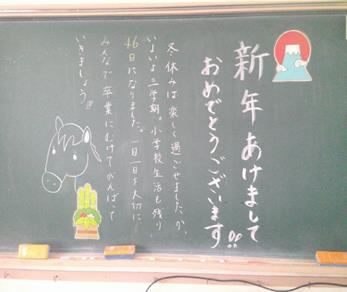 新年あけまして
おめでとうございます!!
冬休みは楽しく過ごせましたか。
いよいよ三学期。小学校生活も残り
46日になりました。一日一日を大切に
みんなで卒業にむけてがんばって
いきましょう!!